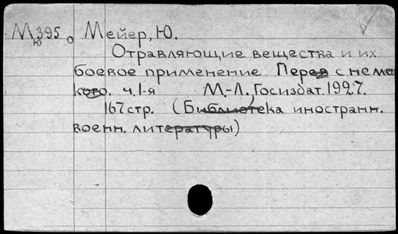 М395 о Мейер, Ю.
ю
Отравляющие вещества и их
боевое применение. Перев с немец
кого. ч. 1-я М.-Л. Госиздат. 1927.
167 стр. (Библиотека иностранн.
военн. литературы)